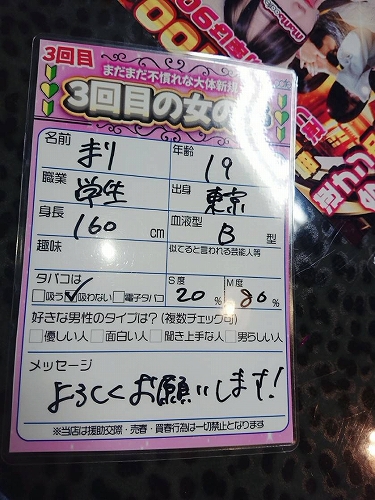 3回目
まだまだ不慣れな大体新規
3回目の女の
名前
まり
年齢
19
職業
学生
出身
東京
身長
160 cm
血液型
B 型
趣味
似てると言われる芸能人等
タバコは
□吸う ☑吸わない □電子タバコ
S度
20 %
M度
80 %
好きな男性のタイプは？(複数チェック可)
□優しい人 □面白い人 □聞き上手な人 □男らしい人
メッセージ
よろしくお願いします!
※当店は援助交際・売春・買春行為は一切禁止となります